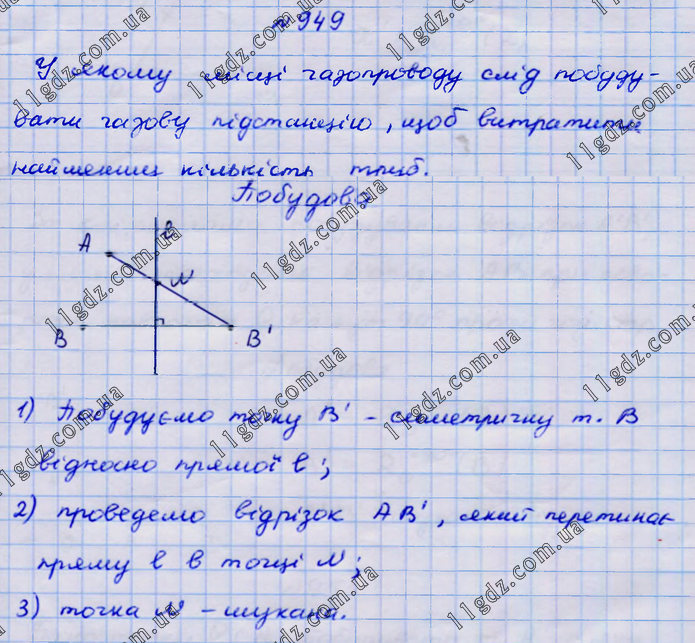 №949
У якому місці газопроводу слід побуду-
вати газову підстанцію, щоб витратити
найменшу кількість труб.
Побудова
A
ℓ
N
B
B'
1) Побудуємо точку B' - симетричну т. B
відносно прямої ℓ;
2) проведемо відрізок AB', який перетинає
пряму ℓ в точці N;
3) точка N - шукана.
11gdz.com.ua
11gdz.com.ua
11gdz.com.ua
11gdz.com.ua
11gdz.com.ua
11gdz.com.ua
11gdz.com.ua
11gdz.com.ua
11gdz.com.ua
11gdz.com.ua
11gdz.com.ua
11gdz.com.ua